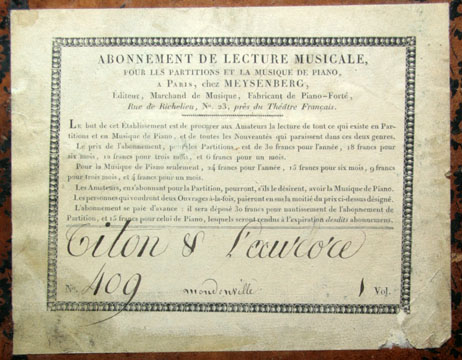 ABONNEMENT DE LECTURE MUSICALE,
POUR LES PARTITIONS ET LA MUSIQUE DE PIANO,
A PARIS, chez MEYSENBERG,
Editeur, Marchand de Musique, Fabricant de Piano-Forté,
Rue de Richelieu, No. 23, près du Théâtre Français.
LE but de cet Etablissement est de procurer aux Amateurs la lecture de tout ce qui existe en Par-
titions et en Musique de Piano, et de toutes les Nouveautés qui paraissent dans ces deux genres.
Le prix de l'abonnement, pour les Partitions, est de 30 francs pour l'année, 18 francs pour
six mois, 12 francs pour trois mois, et 6 francs pour un mois.
Pour la Musique de Piano seulement, 24 francs pour l'année, 15 francs pour six mois, 9 francs
pour trois mois, et 4 francs pour un mois.
Les Amateurs, en s'abonnant pour la Partition, pourront, s'ils le désirent, avoir la Musique de Piano.
Les personnes qui voudront deux Ouvrages à-la-fois, paieront en sus la moitié du prix ci-dessus désigné.
L'abonnement se paie d'avance: il sera déposé 30 francs pour nantissement de l'abonnement de
Partition, et 15 francs pour celui de Piano, lesquels seront rendus à l'expiration desdits abonnemens.
Titon & l'eaurore
No. 409 mondonville 1 Vol.